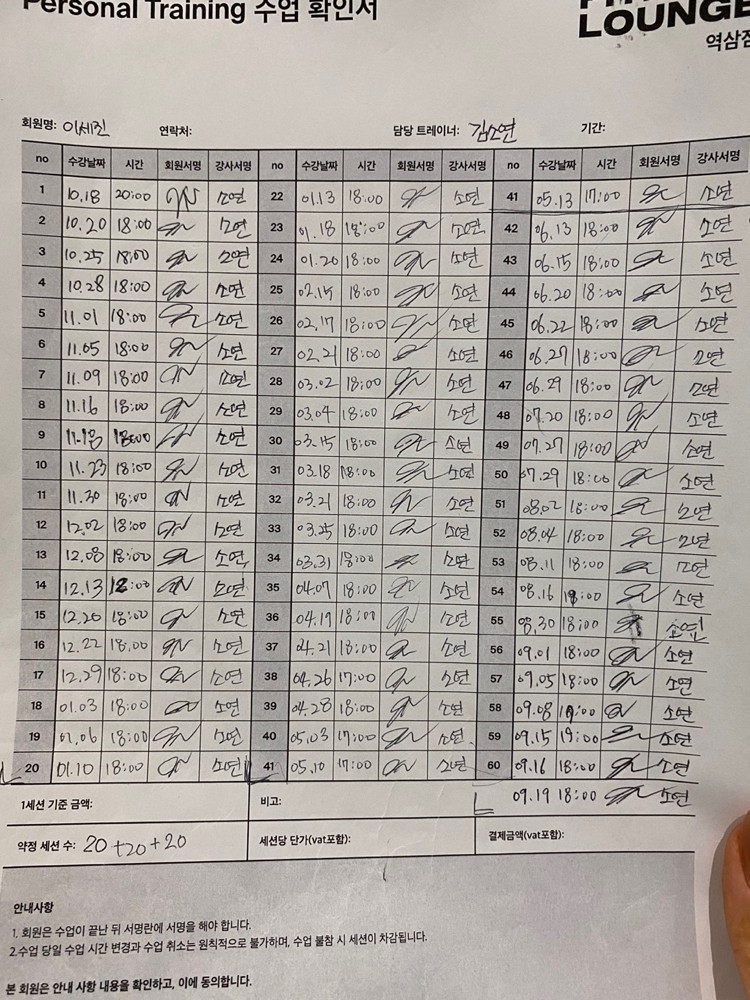 Personal Training 수업 확인서
LOUNGE
역삼점
회원명: 이세진 연락처: 담당 트레이너: 김소연 기간:
no 수강날짜 시간 회원서명 강사서명 no 수강날짜 시간 회원서명 강사서명 no 수강날짜 시간 회원서명 강사서명
1 10.18 20:00 소연 22 01.13 18:00 소연 41 05.13 17:00 소연
2 10.20 18:00 소연 23 01.18 18:00 소연 42 06.13 18:00 소연
3 10.25 18:00 소연 24 01.20 18:00 소연 43 06.15 18:00 소연
4 10.28 18:00 소연 25 02.15 18:00 소연 44 06.20 18:00 소연
5 11.01 18:00 소연 26 02.17 18:00 소연 45 06.22 18:00 소연
6 11.05 18:00 소연 27 02.21 18:00 소연 46 06.27 18:00 소연
7 11.09 18:00 소연 28 03.02 18:00 소연 47 06.29 18:00 소연
8 11.16 18:00 소연 29 03.04 18:00 소연 48 07.20 18:00 소연
9 11.18 18:00 소연 30 03.15 18:00 소연 49 07.27 18:00 소연
10 11.23 18:00 소연 31 03.18 18:00 소연 50 07.29 18:00 소연
11 11.30 18:00 소연 32 03.21 18:00 소연 51 08.02 18:00 소연
12 12.02 18:00 소연 33 03.25 18:00 소연 52 08.04 18:00 소연
13 12.08 18:00 소연 34 03.31 18:00 소연 53 08.11 18:00 소연
14 12.13 18:00 소연 35 04.07 18:00 소연 54 08.16 18:00 소연
15 12.20 18:00 소연 36 04.19 18:00 소연 55 08.30 18:00 소연
16 12.22 18:00 소연 37 04.21 18:00 소연 56 09.01 18:00 소연
17 12.29 18:00 소연 38 04.26 17:00 소연 57 09.05 18:00 소연
18 01.03 18:00 소연 39 04.28 18:00 소연 58 09.08 19:00 소연
19 01.06 18:00 소연 40 05.03 17:00 소연 59 09.15 19:00 소연
20 01.10 18:00 소연 41 05.10 17:00 소연 60 09.16 18:00 소연
09.19 18:00 소연
1세션 기준 금액: 비고:
약정 세션 수: 20+20+20 세션당 단가(vat포함): 결제금액(vat포함):
안내사항
1. 회원은 수업이 끝난 뒤 서명란에 서명을 해야 합니다.
2.수업 당일 수업 시간 변경과 수업 취소는 원칙적으로 불가하며, 수업 불참 시 세션이 차감됩니다.
본 회원은 안내 사항 내용을 확인하고, 이에 동의합니다.